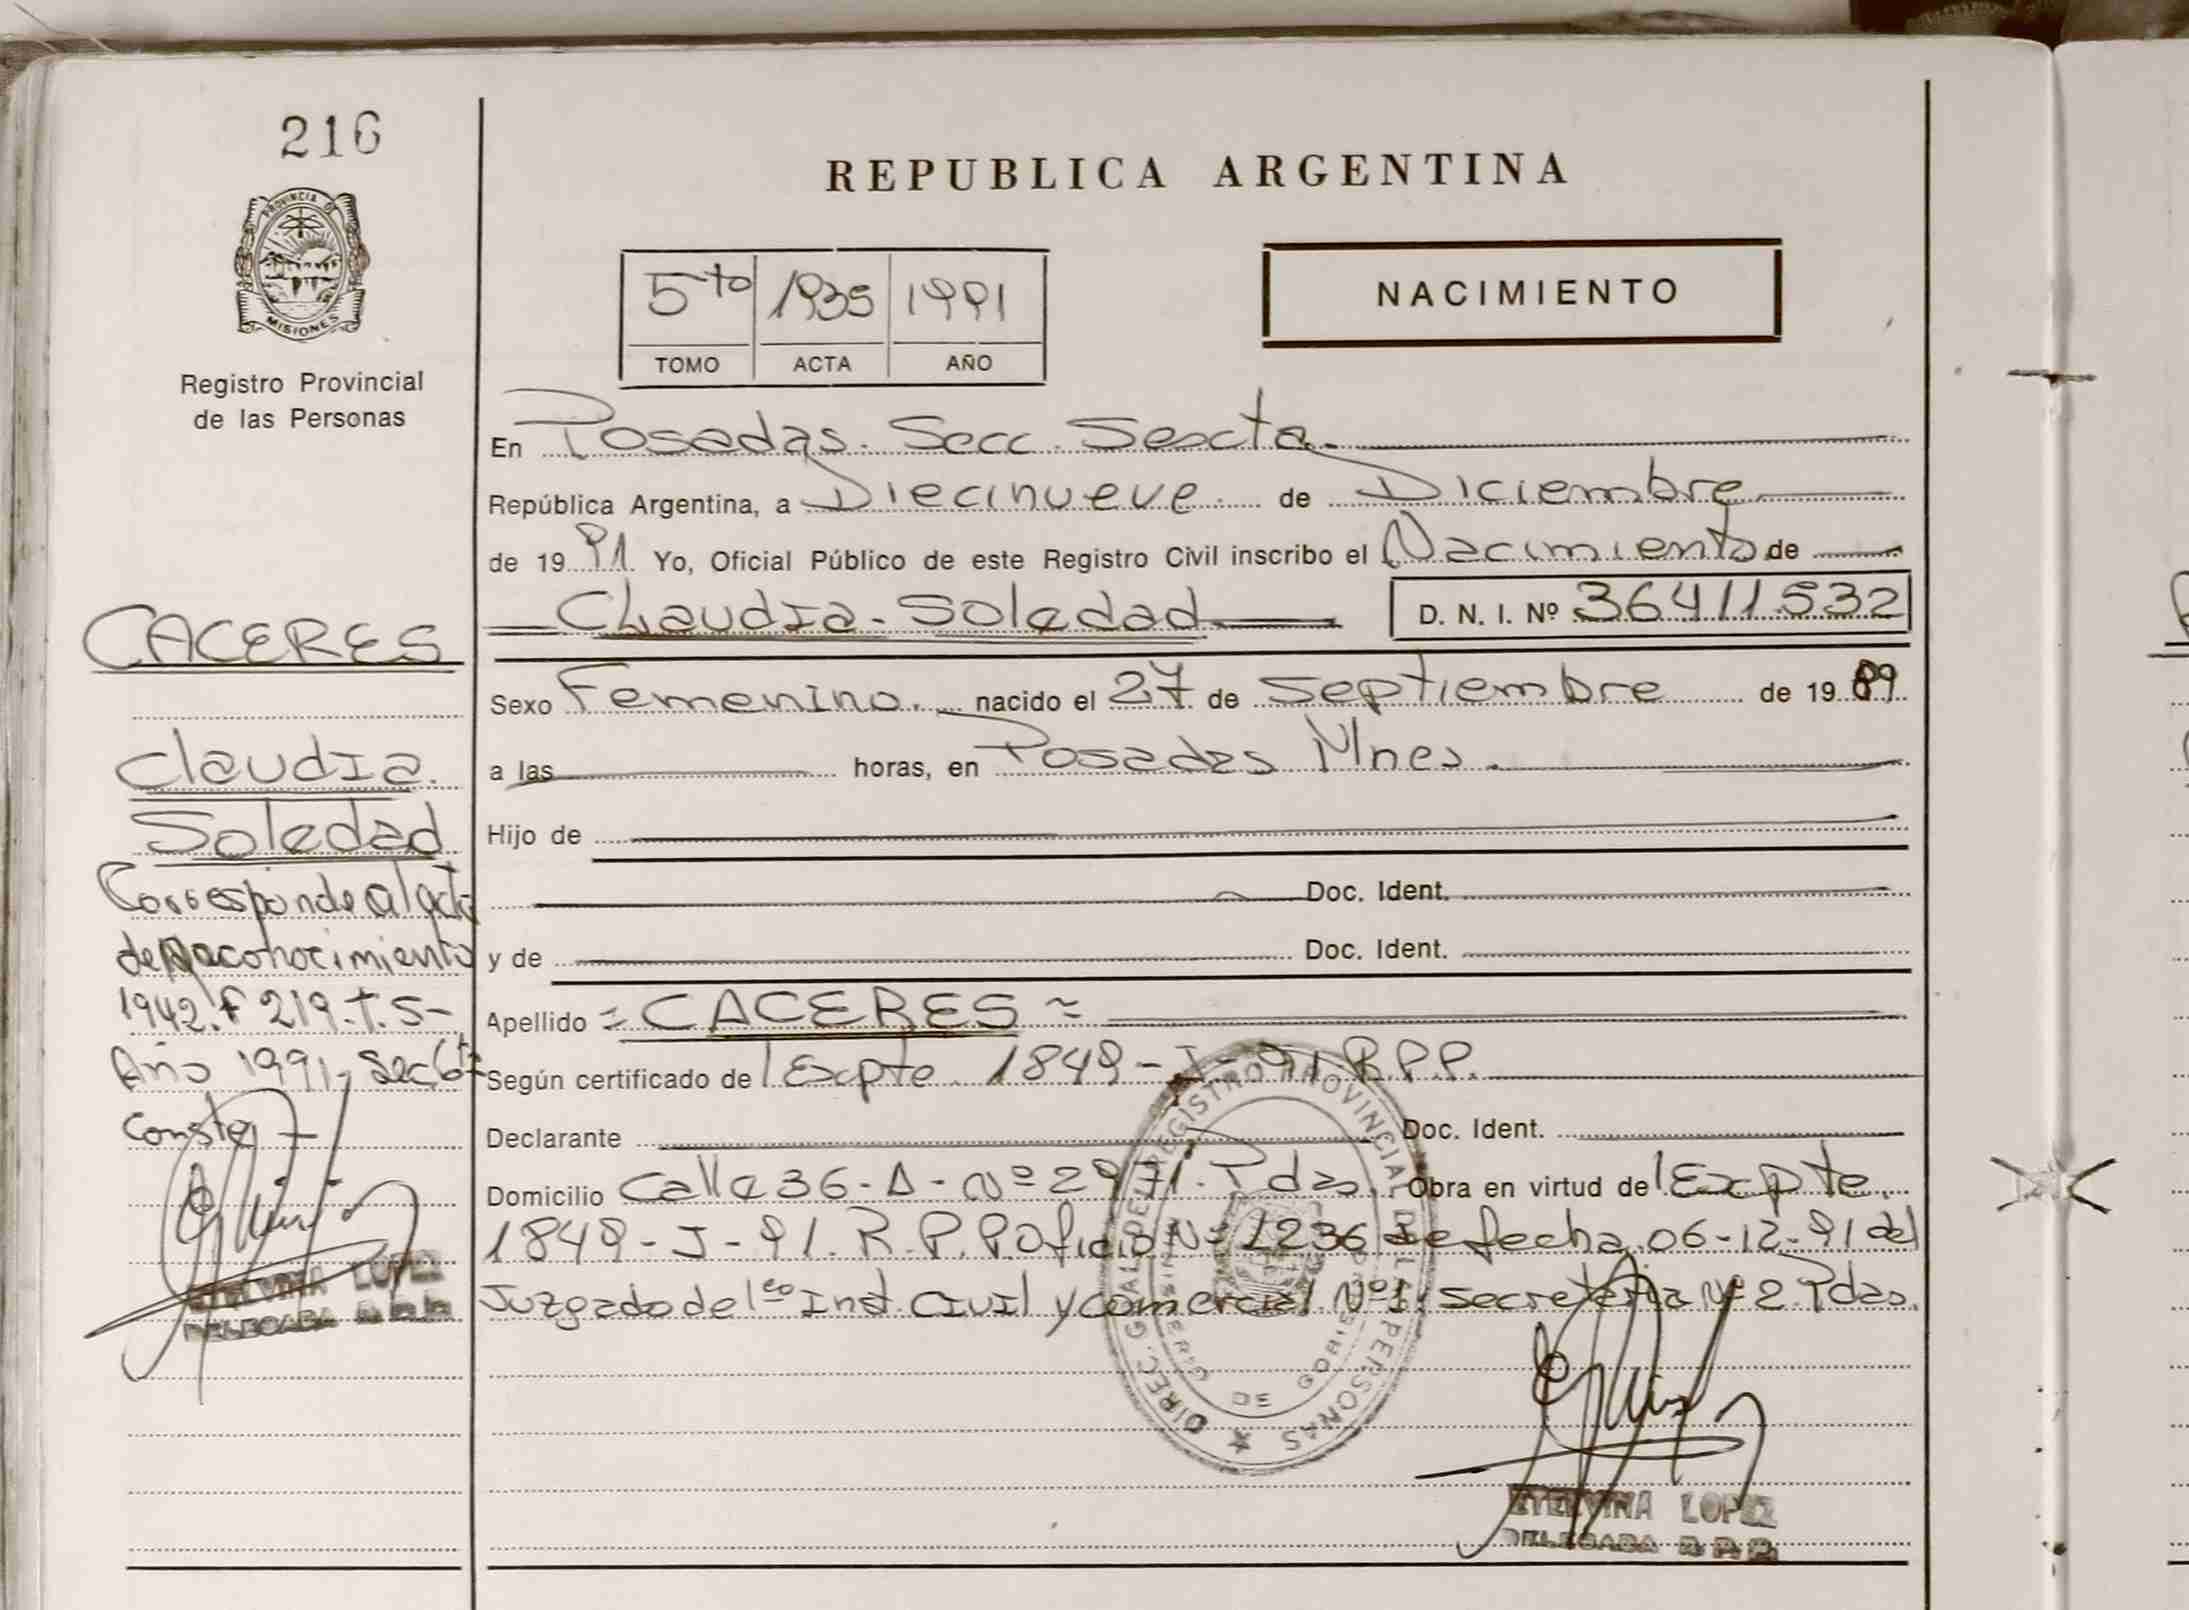 216
PROVINCIA DE
MISIONES
Registro Provincial
de las Personas
CACERES
Claudia
Soledad
Corresponde al acta
de Reconocimiento
1942. f 219. T. 5-
Año 1991, Sec 6ta
Conste
ETELVINA LOPEZ
DELEGADA R.P.P.
REPUBLICA ARGENTINA
5to 1935 1991
TOMO ACTA AÑO
NACIMIENTO
En Posadas. Secc. Sexta.
República Argentina, a Diecinueve. de Diciembre
de 19 91. Yo, Oficial Público de este Registro Civil inscribo el Nacimiento de
Claudia - Soledad D. N. I. Nº 36411.532
Sexo Femenino. nacido el 27 de Septiembre de 19 89
a las horas, en Posadas Mnes.
Hijo de
Doc. Ident.
y de Doc. Ident.
Apellido = CACERES =
Según certificado de Expte. 1849 - J - 91 R.P.P.
Declarante Doc. Ident.
Domicilio Calle 36 - A - Nº 2971. Pdas. Obra en virtud de Expte.
1849 - J - 91. R.P.P Oficio Nº 1236 de fecha 06-12-91 del
Juzgado de 1era Inst. Civil y Comercial Nº 1. Secretaria Nº 2 Pdas.
DIREC. GRAL DEL REGISTRO PROVINCIAL DE LAS PERSONAS
MINISTERIO DE GOBIERNO
ETELVINA LOPEZ
DELEGADA R.P.P.